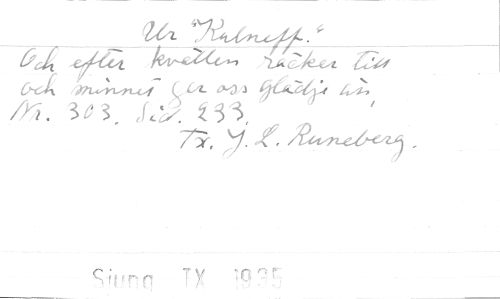 Ur "Kulneff."
Och efter kvällen räcker till
och minnet ger oss glädje än,
Nr. 303. Sid. 233.
Tx. J. L. Runeberg.
Sjung TX 1935